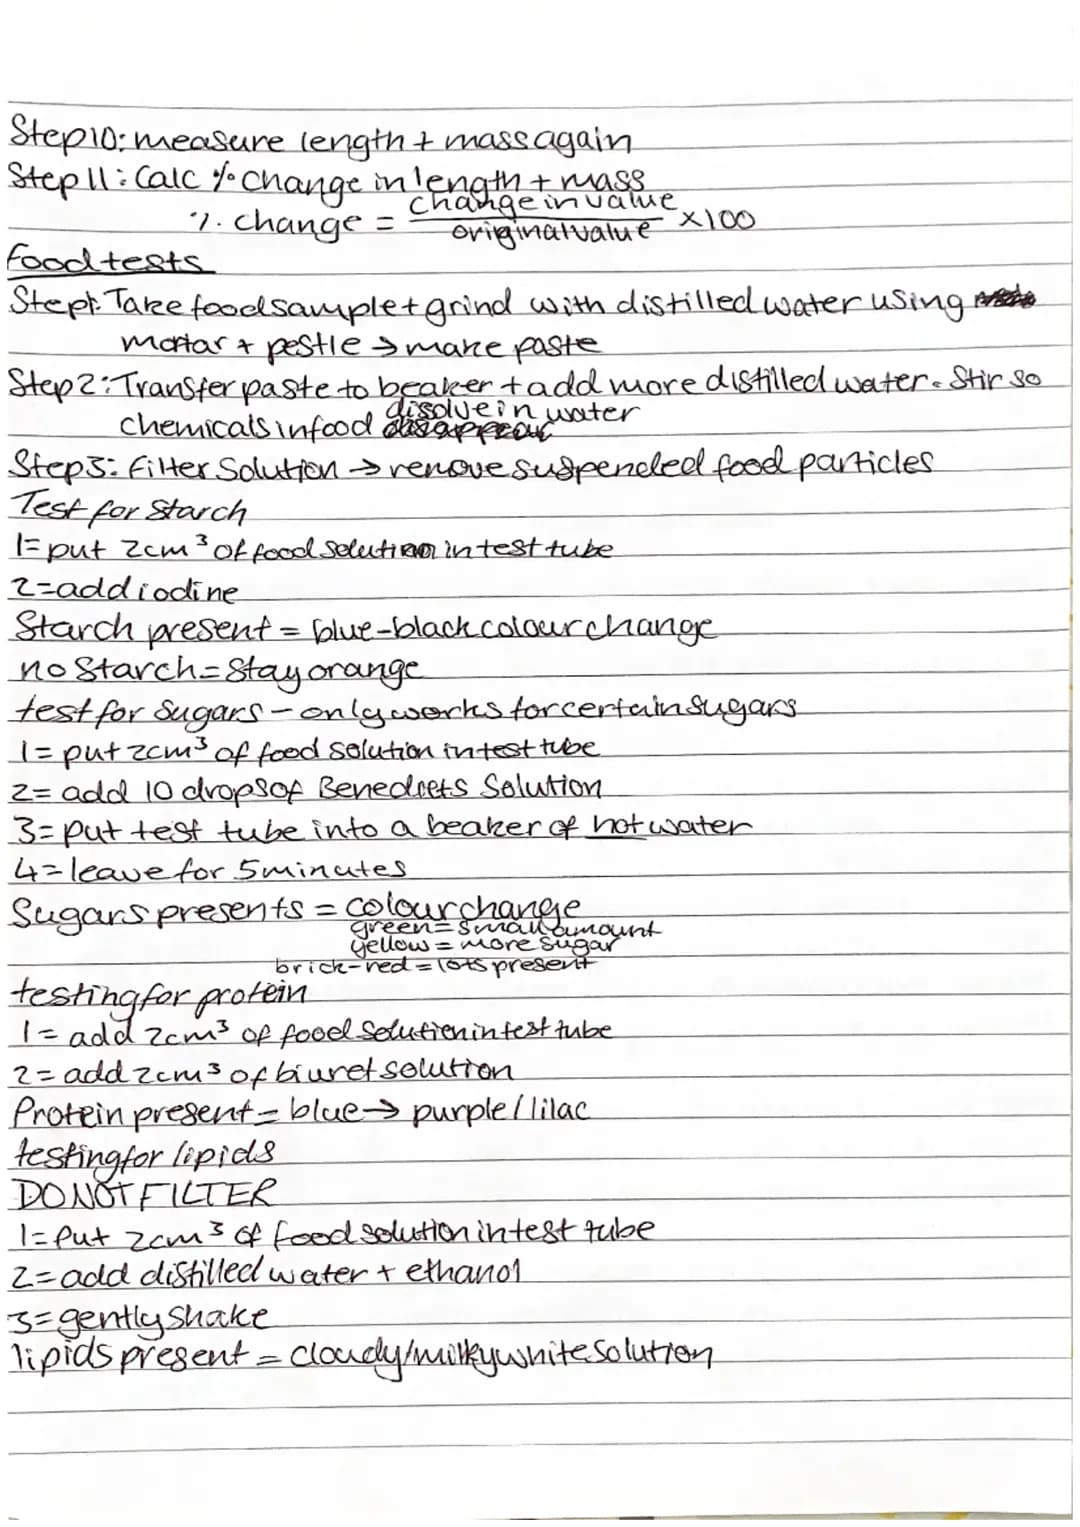 Step10: measure length + mass again
Step 11: Calc % change in length + mass
% change = change in value / original value ×100
Food tests
Step1: Take food sample + grind with distilled water using
mortar + pestle → make paste
Step 2: Transfer paste to beaker + add more distilled water. Stir so
chemicals in food disolve in water
Step3: Filter Solution → remove suspended food particles
Test for Starch
1= put 2cm³ of food solution in test tube
2=add iodine
Starch present = blue-black colour change
no Starch = Stay orange
test for Sugars - only works for certain Sugars
1= put 2cm³ of food solution in test tube
2= add 10 drops of Benedicts Solution
3= put test tube into a beaker of hot water
4= leave for 5 minutes
Sugars presents = colour change
green = small amount
yellow = more sugar
brick-red = lots present
testing for protein
1= add 2cm³ of food solution in test tube
2= add 2cm³ of biuret solution
Protein present = blue → purple/lilac
testing for lipids
DO NOT FILTER
1= Put 2cm³ of food solution in test tube
2= add distilled water + ethanol
3= gently shake
lipids present = cloudy/milky white solution